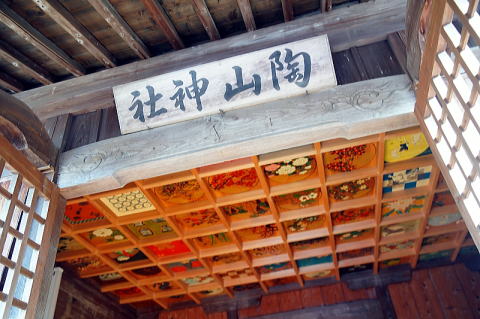 陶山神社